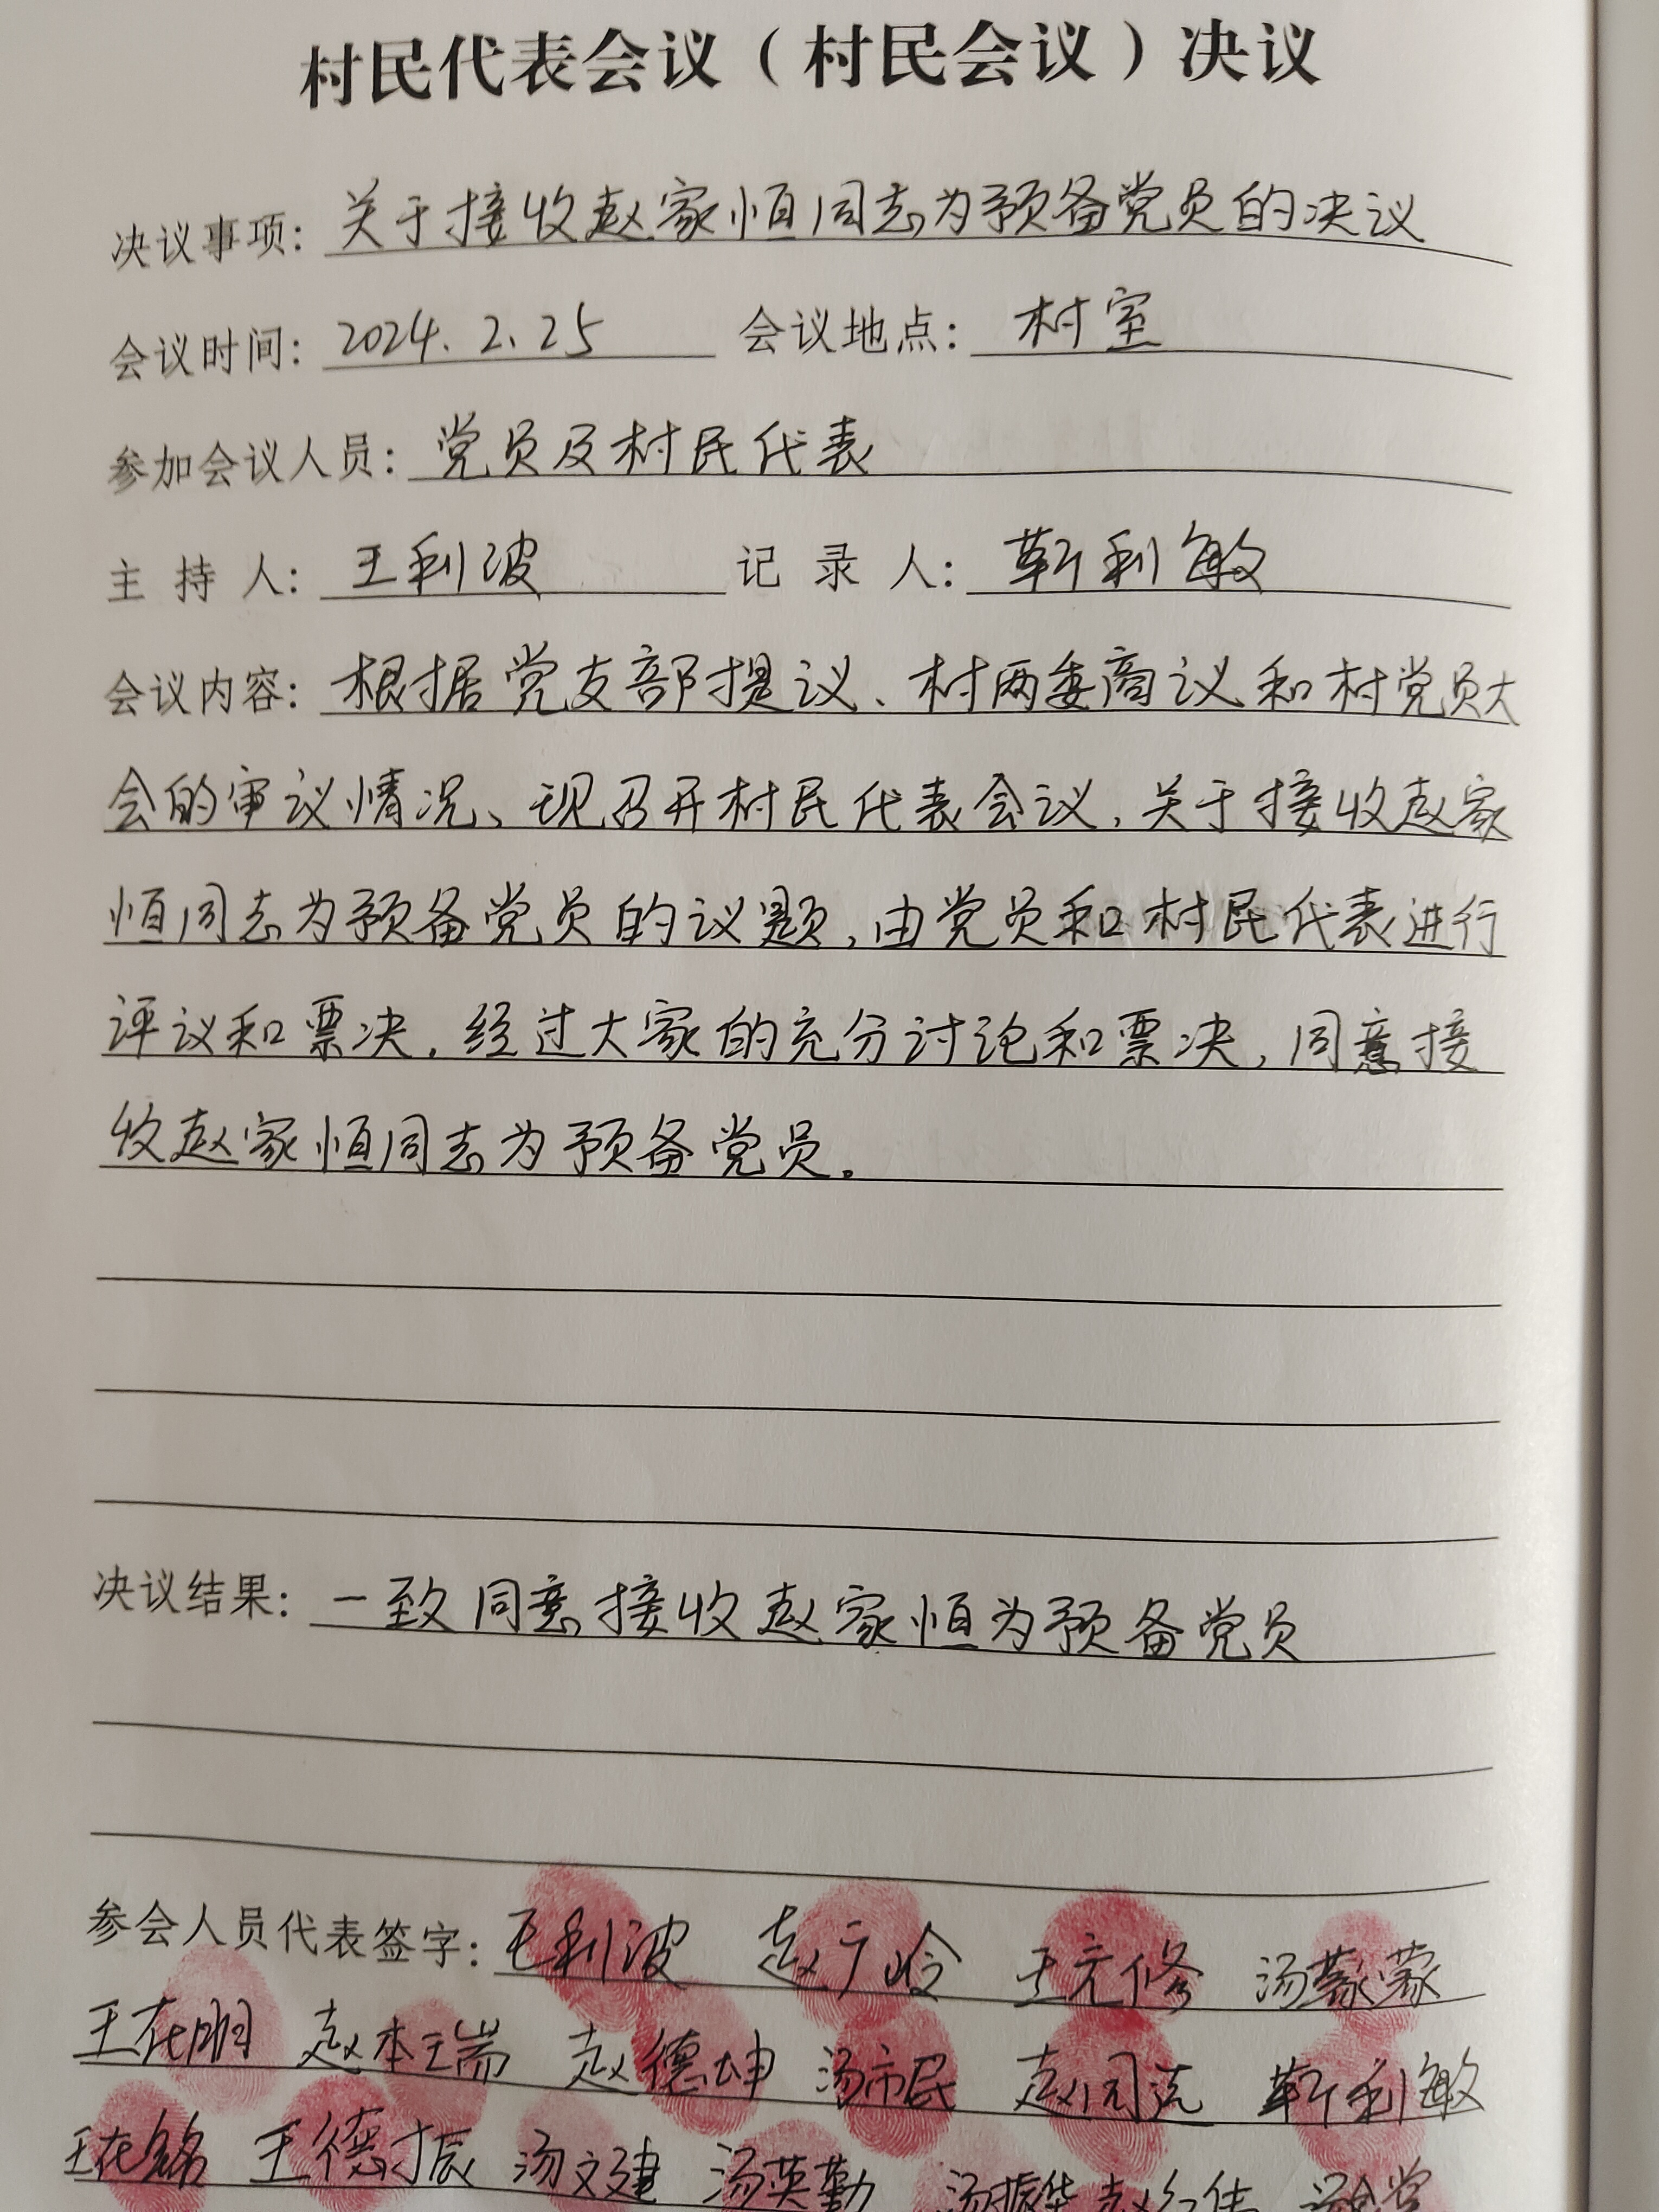 村民代表会议（村民会议）决议
决议事项：关于接收赵家恒同志为预备党员的决议
会议时间：2024.2.25 会议地点：村室
参加会议人员：党员及村民代表
主持人：王利波 记录人：靳利敏
会议内容：根据党支部提议、村两委商议和村党员大
会的审议情况、现召开村民代表会议，关于接收赵家
恒同志为预备党员的议题，由党员和村民代表进行
评议和票决。经过大家的充分讨论和票决，同意接
收赵家恒同志为预备党员。
决议结果：一致同意接收赵家恒为预备党员
参会人员代表签字：王利波 赵广岭 王克修 汤蒙蒙
王在明 赵本瑞 赵德坤 汤市民 靳利敏
王在铭 王德振 汤文建 汤英勤 汤振华